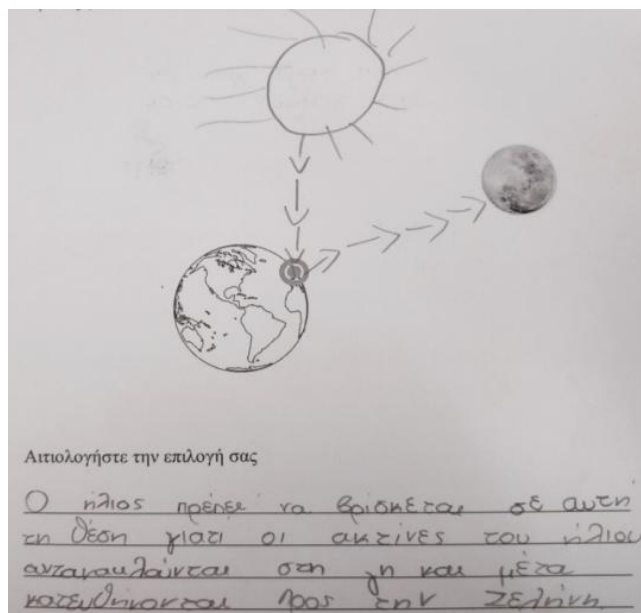 Αιτιολογήστε την επιλογή σας
Ο ήλιος πρέπει να βρίσκεται σε αυτή
τη θέση γιατι οι ακτίνες του ήλιου
αντανακλούνται στη γη και μέτα
κατευθήνονται προς την Σελήνη